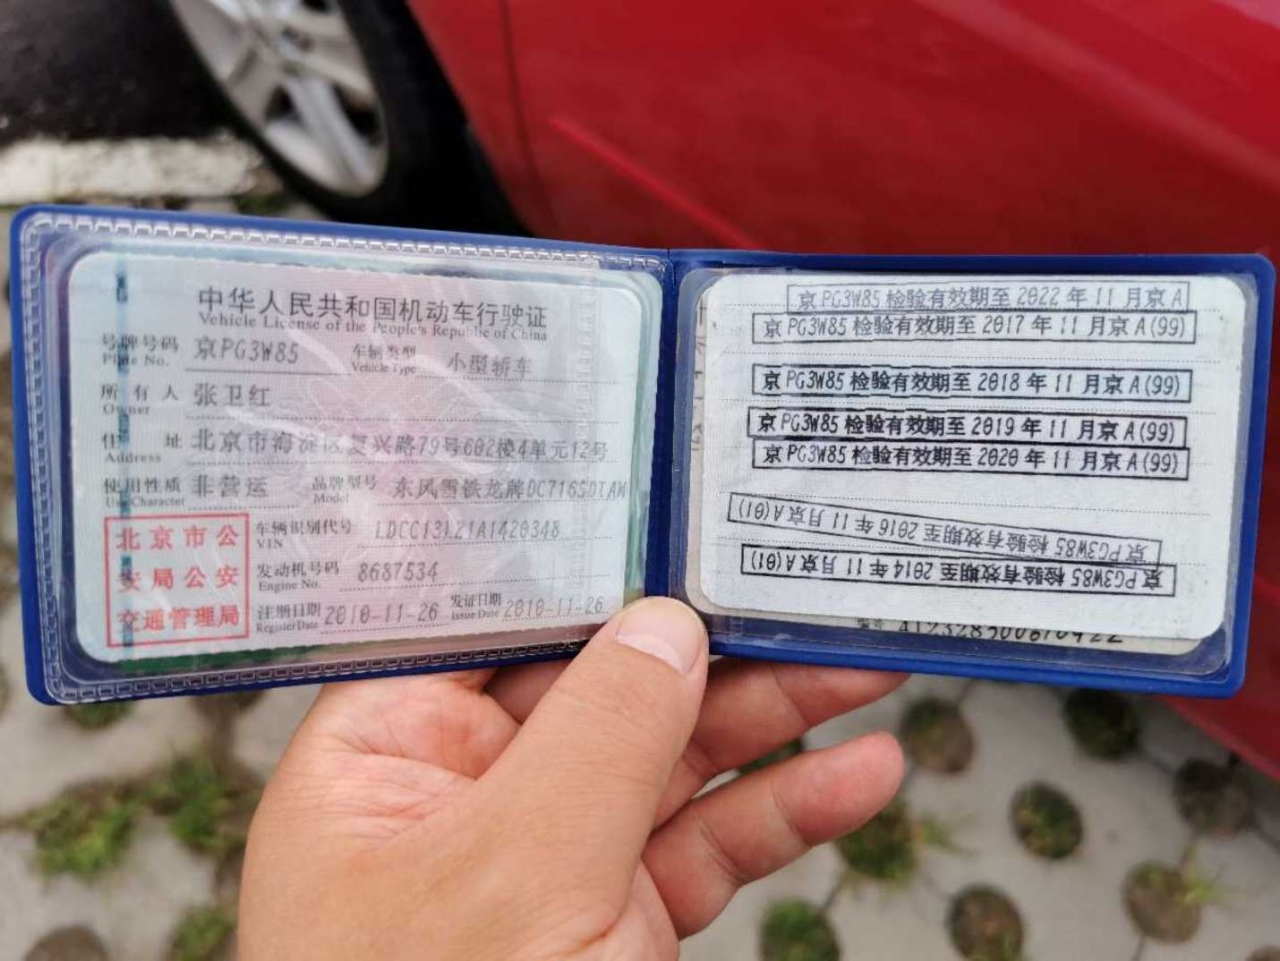 中华人民共和国机动车行驶证
Vehicle License of the People's Republic of China
号牌号码 京PG3W85 车辆类型 小型轿车
Plate No. Vehicle Type
所有人 张卫红
Owner
住址 北京市海淀区复兴路79号602楼4单元12号
Address
使用性质 非营运 品牌型号 东风雪铁龙牌DC7165DTAW
Use Character Model
北京市公
安局公安
交通管理局
车辆识别代号 LDCC13L21A1420348
VIN
发动机号码 8687534
Engine No.
注册日期 2010-11-26 发证日期 2010-11-26
Register Date Issue Date
京PG3W85 检验有效期至 2022 年 11 月京 A
京PG3W85 检验有效期至 2017 年 11 月京 A(99)
京PG3W85 检验有效期至 2018 年 11 月京 A(99)
京PG3W85 检验有效期至 2019 年 11 月京 A(99)
京PG3W85 检验有效期至 2020 年 11 月京 A(99)
京PG3W85 检验有效期至 2016 年 11 月京 A(01)
京PG3W85 检验有效期至 2014 年 11 月京 A(01)